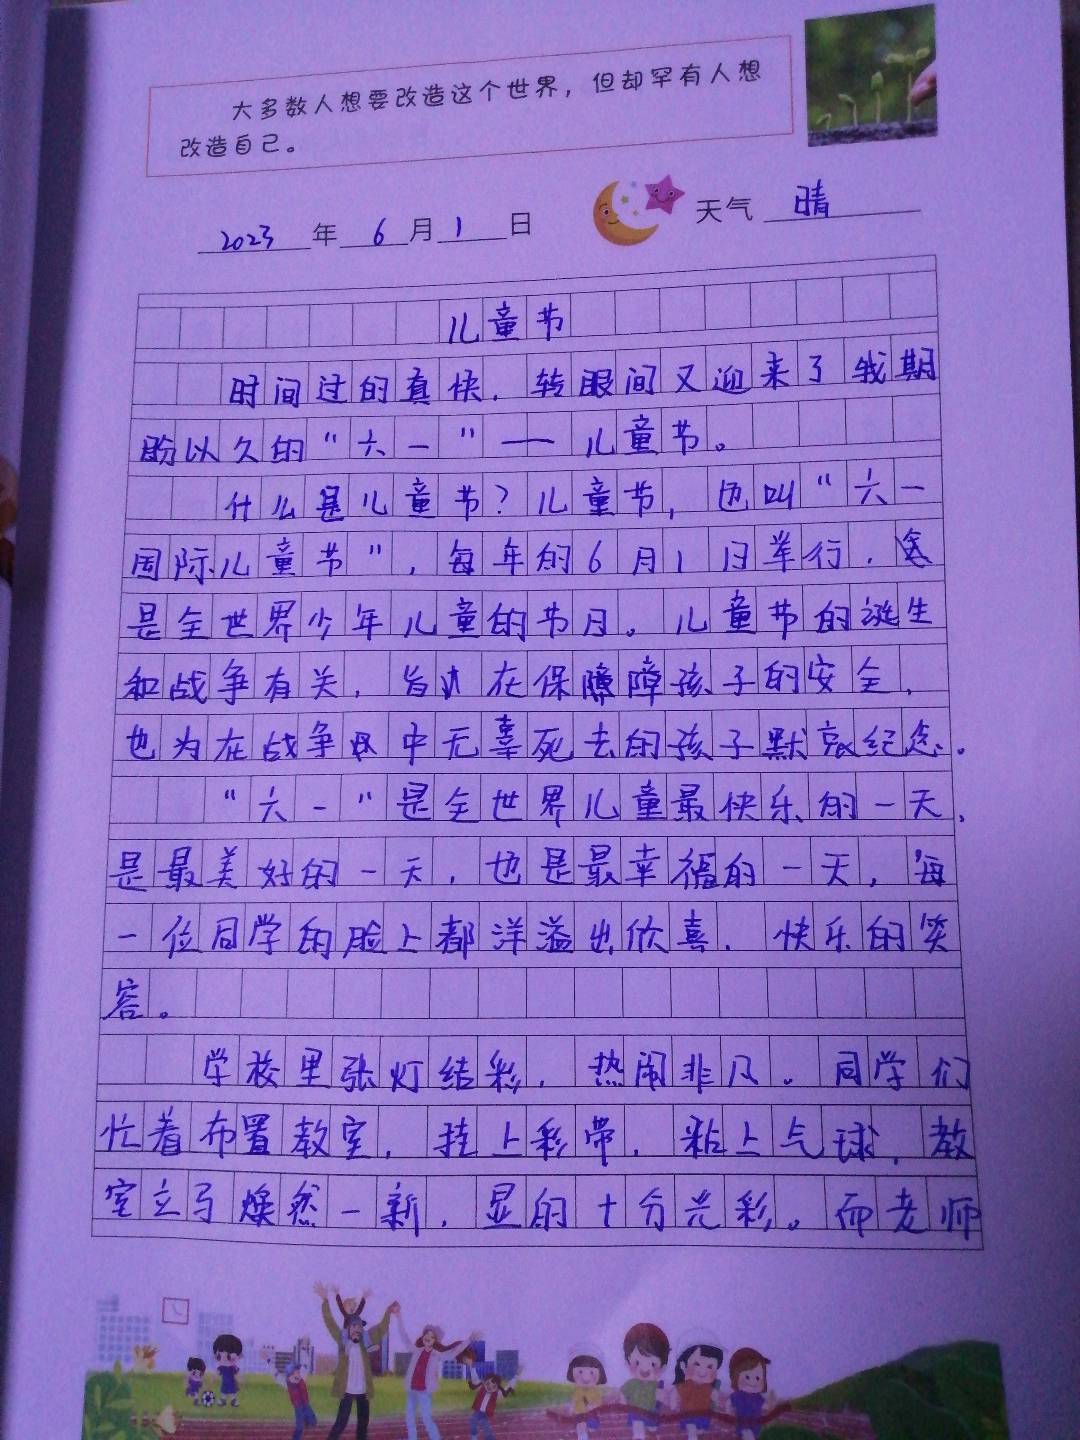 大多数人想要改造这个世界，但却罕有人想
改造自己。
2023年6月1日 天气 晴
儿童节
时间过的真快，转眼间又迎来了我期
盼以久的“六一”——儿童节。
什么是儿童节？儿童节，也叫“六一
国际儿童节”，每年的6月1日举行，这
是全世界少年儿童的节日。儿童节的诞生
和战争有关，旨在保障孩子的安全，
也为在战争中无辜死去的孩子默哀纪念。
“六一”是全世界儿童最快乐的一天，
是最美好的一天，也是最幸福的一天，每
一位同学的脸上都洋溢出欣喜、快乐的笑
容。
学校里张灯结彩，热闹非凡。同学们
忙着布置教室，挂上彩带，粘上气球，教
室立马焕然一新，显的十分光彩。而老师